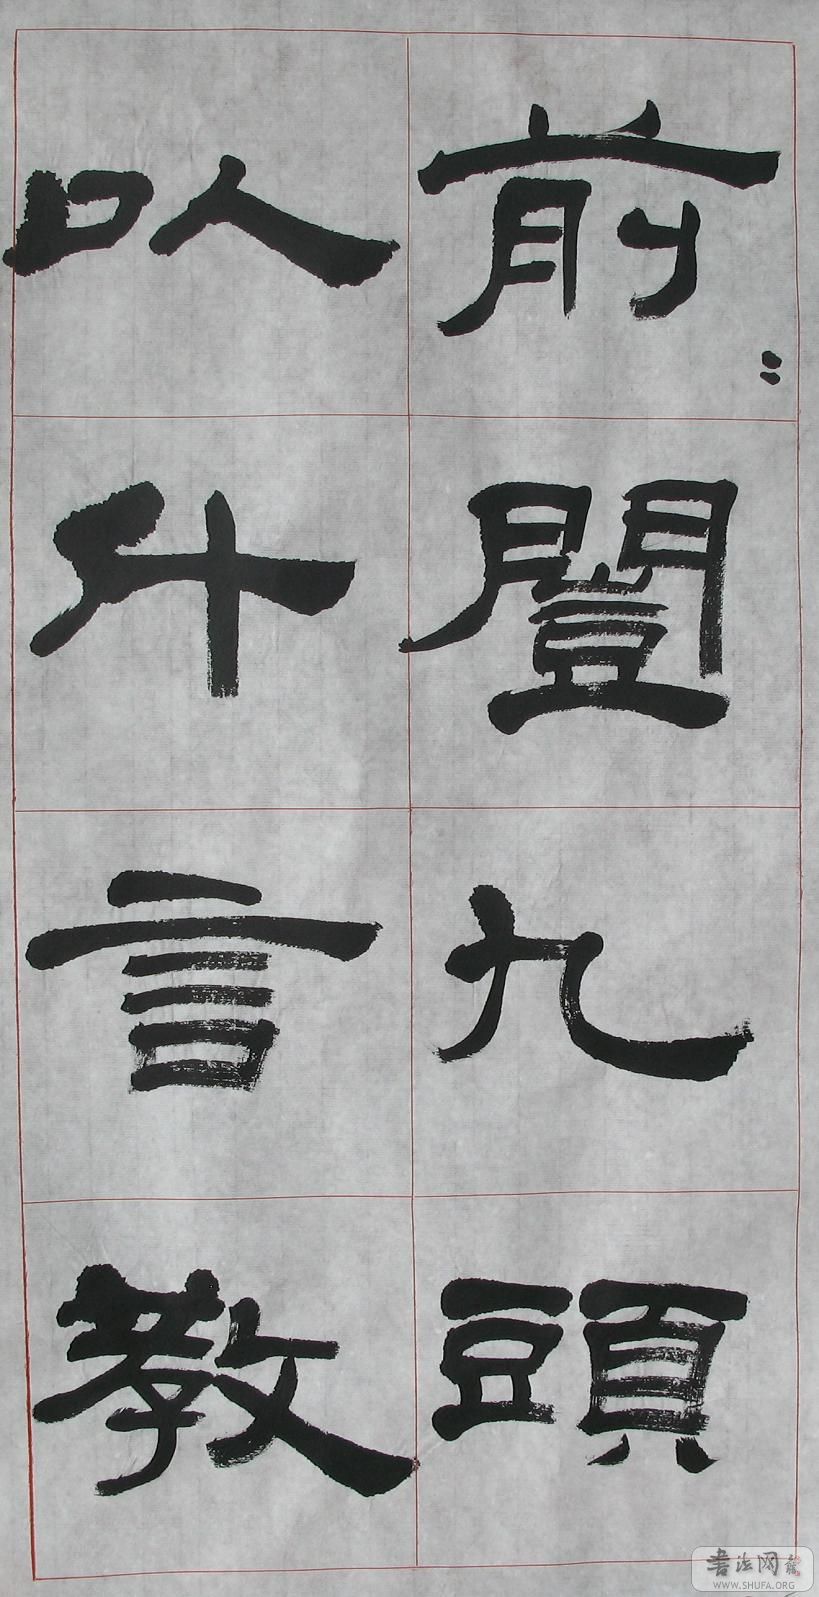 前〻闓九頭
以什言教
書法网
WWW.SHUFA.ORG